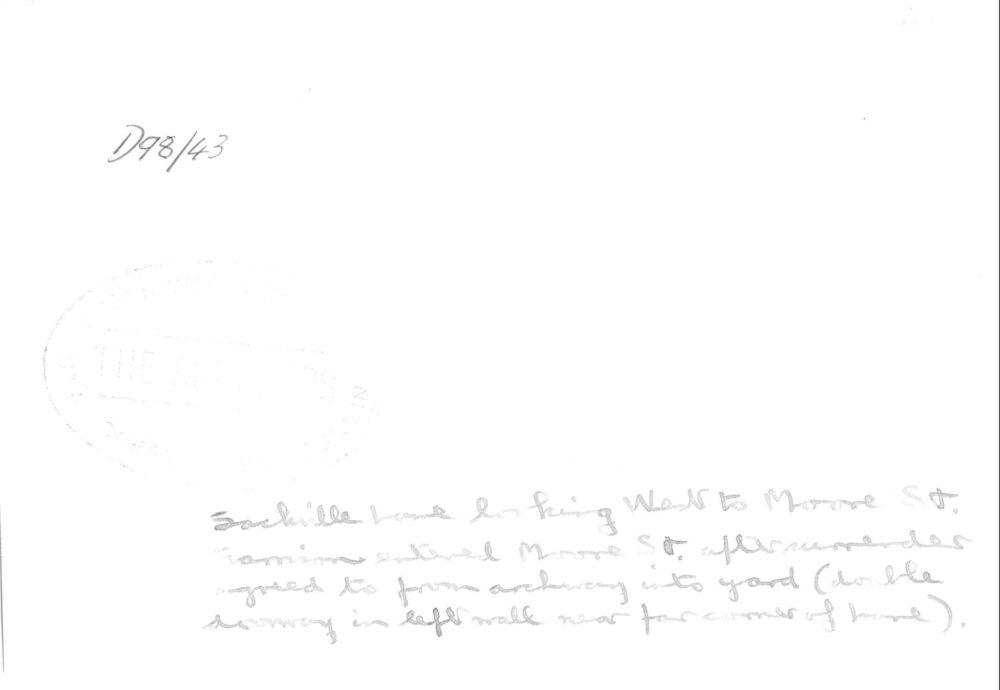 D98/43
THE
Sackville Lane looking West to Moore St.
Garrison entered Moore St. after surrender
agreed to from archway into yard (double
doorway in left wall near far corner of lane).